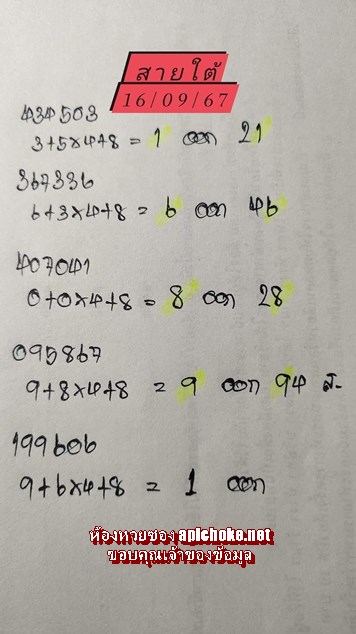 สายใต้
16/09/67
434503
3+5×4+8 = 1 ออก 21
367336
6+3×4+8 = 6 ออก 46
407041
0+0×4+8 = 8 ออก 28
095867
9+8×4+8 = 9 ออก 94 ส.
199606
9+6×4+8 = 1 ออก
ห้องหวยซอง apichoke.net
ขอบคุณเจ้าของข้อมูล